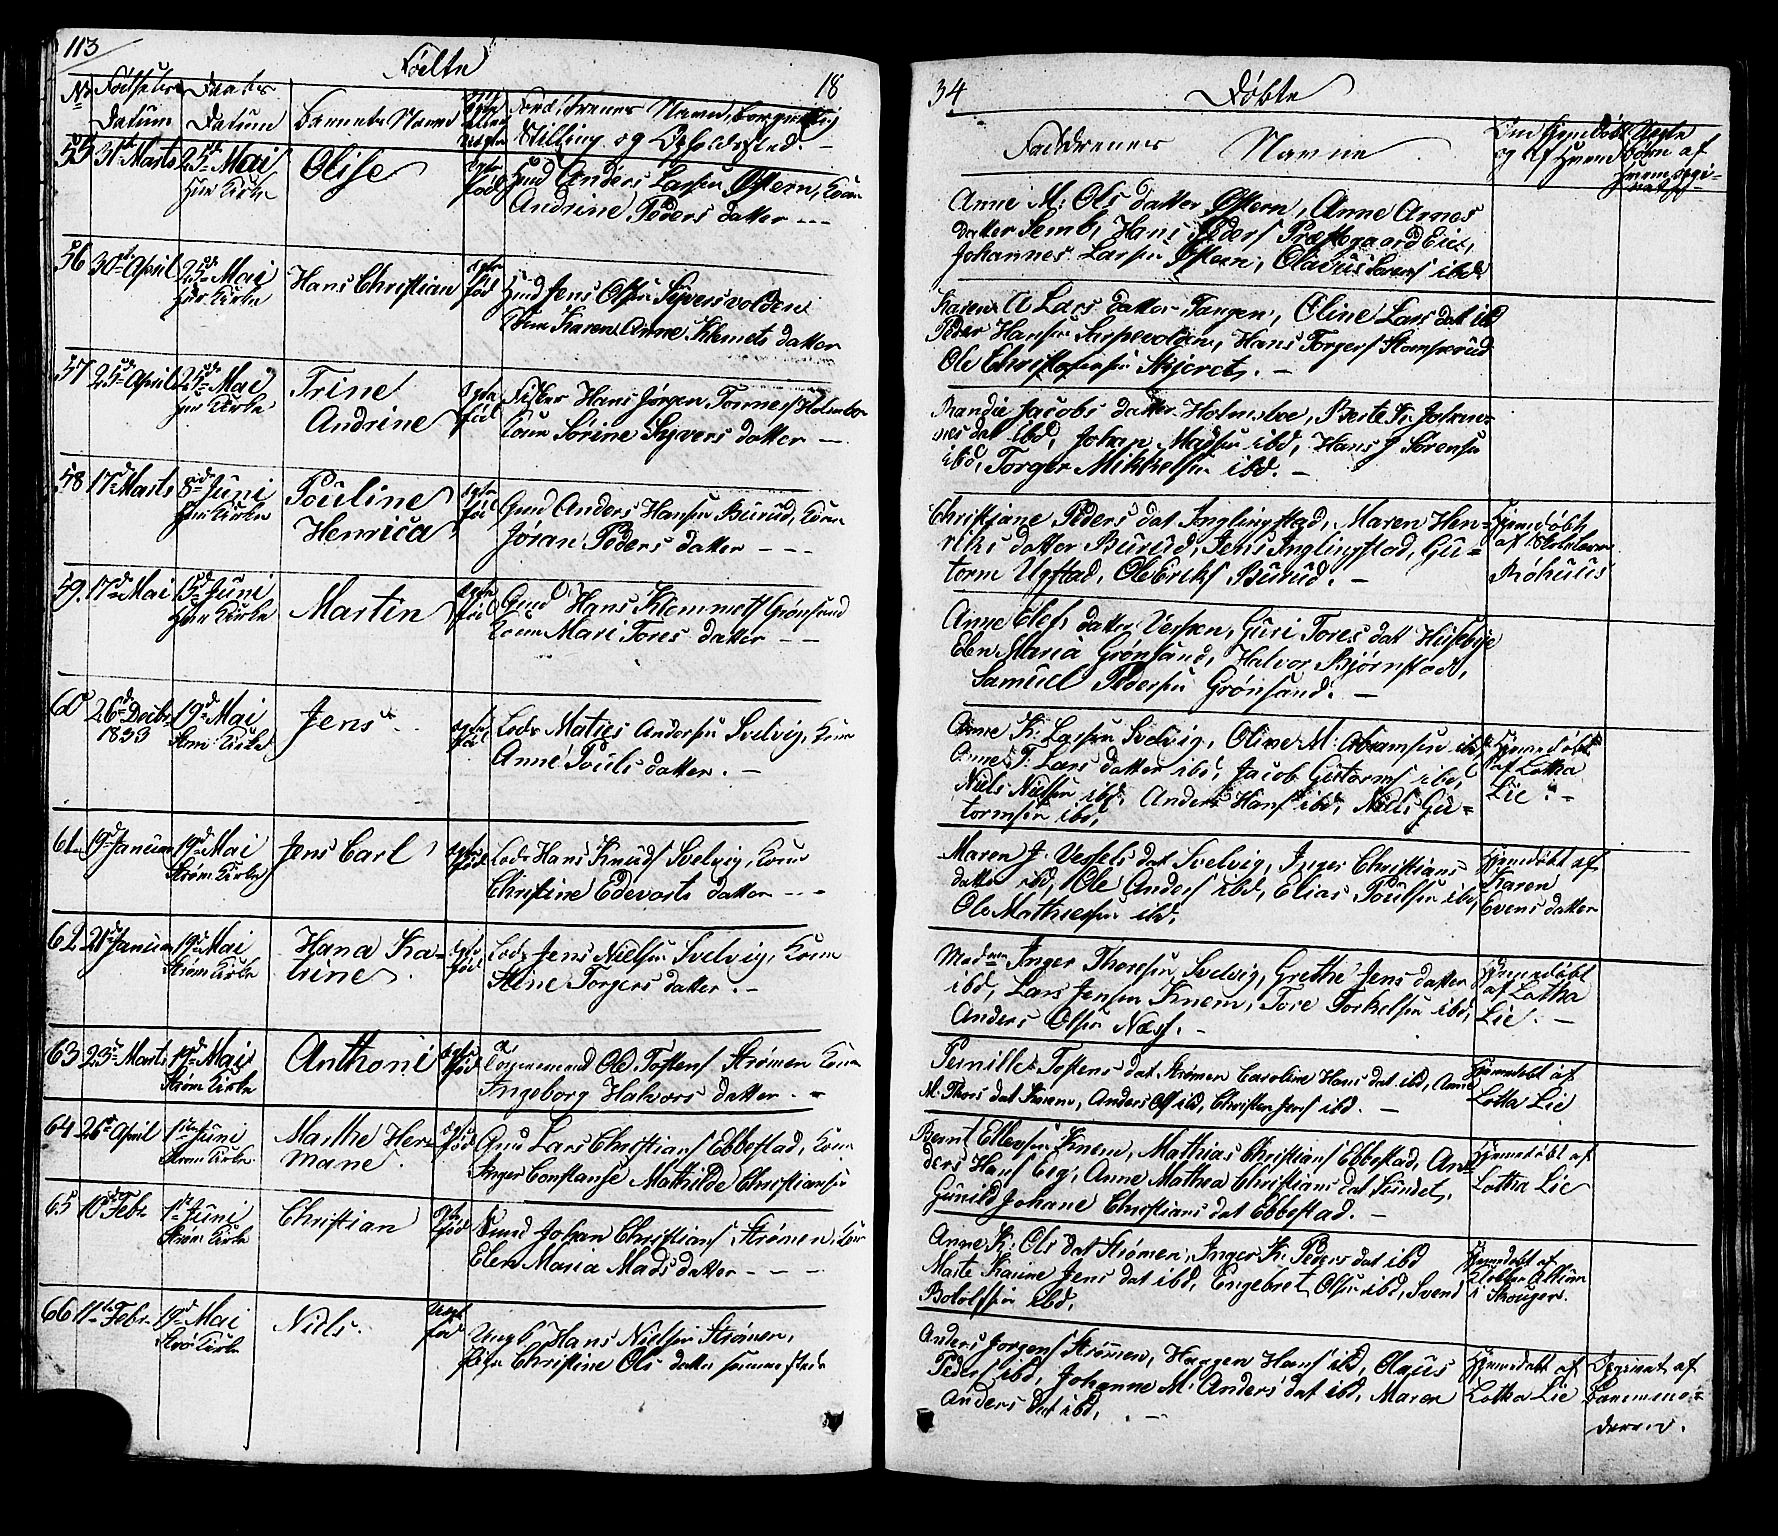 113
Fødte
18
No
Fødsels
Datum
Daabs
Datum
Barnets Navn
Forældrenes Navn, Borgerlig
Stilling og Opholdssted. –
55
31te Marts
25de Mai
Hur Kirke
Olise
ægte
fød
Anders Larsen Østern, Kone
Andrine Peders datter ---
56
30te April
25de Mai
Hur Kirke
Hans Christian
ægte
fød
Jens Olsen Syversvolden
Karen Anne Klemets datter
57
25de April
25de Mai
Hur Kirke
Trine
Andrine
ægte
fød
Hans Jørgen Tonnes Holmsbo
Kone Sørine Syvers datter –
58
17de Marts
8de Juni
Hur Kirke
Pouline
Henrica
ægte
fød
Gmd Anders Hansen Burud, Kone
Jøran Peders datter ---
59.
17de Mai
Juni
Hur Kirke
Martin
ægte
fød
Gmd Hans Klemmets Grønsand
Kone Mari Tores datter --
60
26de Decbr
1833
19de Mai
Strm Kirke
Jens
ægte
fød
Lods Maties Andersen Svelvig, Kone
Anne Pouls datter. –
61
19de Januar
19de Mai
Strøm Kirke
Jens Carl
ægte
fød
Lods Hans Knuds Svelvig, Kone
Christine Edevarts datter --
62
21de Januar
19de Mai
Strøm Kirke
Hana Ka-
trine
ægte
fød
Lods Jens Nielsen Svelvig, Kone
Stine Torgers datter. –
63
23de Marts
19de Mai
Strøm Kirke
Anthoni
ægte
fød
Ole Tostens Strømen Kone
Ingeborg Halvors datter. –
64
26de April
1ste Juni
Strøm Kirke
Marthe Her-
mane.
ægte
fød
Gmd Lars Christians Ebbestad, Kone
Inger Constanse Mathilde Christiansen
65
10de Febr
1ste Juni
Strøm Kirke
Christian
ægte
fød
Johan Christians Strømen, Kone
Elen Maria Mads datter ---
66
11te Febr
19de Mai
Strø Kirke
Niels.
Uægte
fød
Ungk Hans Nielsen Strømen,
Pige Christine Ols datter sammesteds
34
Døbte
Faddrenes Navne
Om hjemdøbt
og af Hvem
Uegte
Børn af
Hvem begi-
vet
Anne M: Ols datter Østern, Anne Arnes
datter Semb, Hans Peders Præstegaard Eiet,
Johannes Larsen Østern, Olavus Larens ibd
Karen A Lars datter Tangen, Oline Lars dat ibd
Peder Hansen Sarpevolden, Hans Torgers Stomperud
Ole Christophersen Skjeret. –
Randie Jacobs datter Holmsboe, Berte K: Johan-
nes dat ibd, Johan Madsen ibd, Hans J Sørensen
ibd, Torger Mikkelsen ibd. –
Christiane Peders dat Inglingstad, Maren Hen-
riks datter Burud, Jens Inglingstad, Gu-
torm Ugstad, Ole Eriks Burud. –
Hjemdøbt
af Skolelærer
Røhuus
Anne Olefs datter Vessen, Guri Tores dat
Elen Maria Grønsand, Halvor Bjørnstad,
Samuel Pedersen Grønsand. –
Anne K: Larsen Svelvig, Oline M: Abramsen ibd
Anne T: Lars datter ibd, Jacob Gutorms ibd,
Niels Nielsen ibd, Anders Hans ibd, Niels Gu-
tormsen ibd,
Hjemdøbt
af Lotha
Lie. –
Maren J. Vessels dat Svelvig, Inger Christians
datter ibd, Ole Anders ibd, Elias Poulsen ibd,
Ole Mathiesen ibd.
Hjemdøbt af
Karen
Evens datter
Madme Inger Thoresen Svelvig, Grethe Jens datter
ibd, Lars Jensen Knem, Tore Torkelsen ibd,
Anders Olsen Næss. –
Hjemdøbt
af Lotha
Lie. –
Pernille Tostens dat Strømen Caroline Hans dat ibd, Anne
M. Thors dat Knem, Anders Ols ibd, Christen Jens ibd. –
Hjemdøbt af
Lotha Lie
Bernt Ellevsen Knem, Mathias Christians Ebbestad, An-
ders Hans Eeg, Anne Mathea Christians dat Sundet,
Gunild Johane Christians dat Ebbestad. –
Hjemdøbt af
Lotha Lie
Anne K: Ols dat Strømen, Inger K: Peders dat ibd
Marte Karine Jens dat ibd, Engebret Olsen ibd, Svend
Botolfsen ibd,
Hjemdøbt af
Klokker
i Skouger.
Anders Jorgens Strømen, Haagen Hans ibd, Olaus
Peders ibd, Johanne M: Anders dat ibd, Maren
Anders dat ibd, –
Hjemdøbt af
Lotha Lie
Begivet af
Barnemo-
deren.